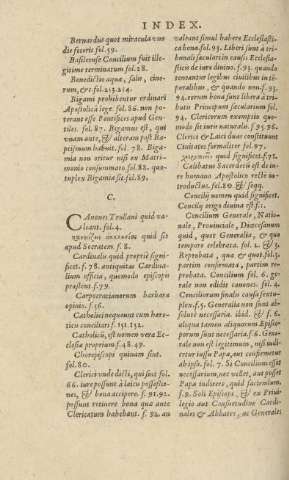 INDEX.
Bernardus quot miracula vno
die fecerit fol. 59.
Basileense Concilium fuit ille-
gitime terminatum fol. 28.
Benedictio aquæ, salis, cine-
rum, &c. fol. 213. 214.
Bigami prohibentur ordinari
Apostolica lege fol. 86. non po-
terant esse Pontifices apud Gen-
tiles. fol. 87. Bigamus est, qui
viuam ante, & alteram post Ba-
ptismum habuit. fol. 78. Biga-
mia non oritur nisi ex Matri-
monio consummato fol. 88. qua-
tuplex Bigamia sit. fol. 89.
C.
CAnones Trullani quid va-
leant. fol. 4.
quid sit
apud Socratem f. 8.
Cardinalis quid proprie signi-
ficet. f. 78. antiquitas Cardina-
lium officia, quemodo episcopis
præstent f. 79.
Carpocratianorum barbara
opinio. f. 56.
Catholici nequeunt cum hære-
ticis concilari f. 151. 152.
Catholicū, est nomen vera Ec-
clesiæ proprium f. 48. 49.
Chorepiscopi quinam sint.
fol. 80.
Clerici vnde dicti, qui sint fol.
66. iure possunt à laicis possessio-
nes, & bona accipere. f. 91. 92.
possunt retinere bona quæ ante
Clericatum habebant. f. 94. an
valeant simul habere Ecclesiasti-
ca bona. fol. 93. Liberi sunt à tri-
bunali seculari in causis Ecclesia-
sticis de iure diuino. f. 93. quando
teneantur legibus ciuilibus in té-
poralibus, & quando non. f. 93.
94. eorum bona sunt libera à tri-
butis Principum secularium fol.
94. Clericorum exemptio quo-
modo de iure naturali. f. 95. 96.
Clerici & Laici duæ constituunt
Ciuitates formaliter fol. 97.
quid significet. f. 71.
Calibatus Sacerdotij est de iu-
re humano Apostolico recte in-
troductus. fol. 80. & seqq.
Concilij nomen quid significet.
Concilij origo diuina est f. 1.
Concilium Generale, Natio-
nale, Prouinciale, Diocesanum
quid, quot Generalia, & quo
tempore celebrata fol. 2. & 3.
Reprobata, quæ & quot fol. 3.
partim confirmata, partim re-
probata. Concilium fol. 6. ge-
rale non edidit canones. fol. 4.
Conciliorum finalis causa sentu-
plex. fol. 5. Generalia non sunt ab-
solute necessaria. ibid. & f. 6.
aliqua tamen aliquorum Episco-
porum sunt necessaria f. 6. Gene-
rale non est legitimum, nisi indi-
cetur iussu Papæ, aut consenietur
ab ipso. fol. 7. Si Concilium esset
necessarium, nec vellet, aut posset
Papa indicere, quid faciendum.
f. 9. Soli Episcopi, & ex Priui-
legio aut Consuetudine Cardi-
nales & Abbates, ac Generales